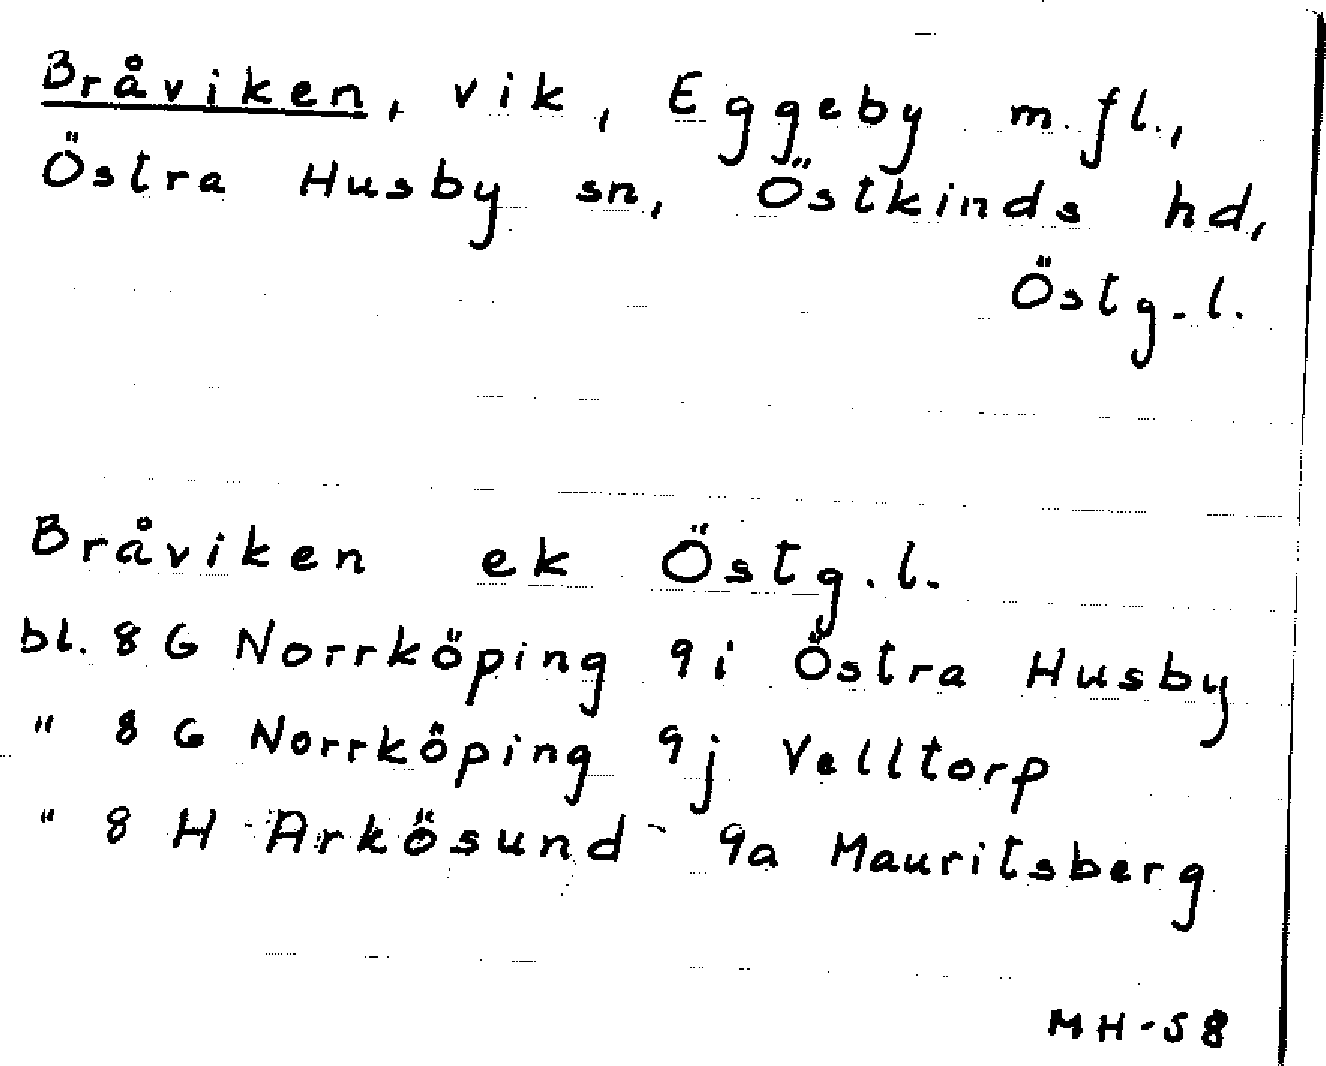 Bråviken, vik, Eggeby m.fl.,
Östra Husby sn, Östkinds hd,
Östg.l.
Bråviken ek Östg.l.
bl. 8 G Norrköping 9i Östra Husby
" 8 G Norrköping 9j Velltorp
" 8 H Arkösund 9a Mauritsberg
MH-58